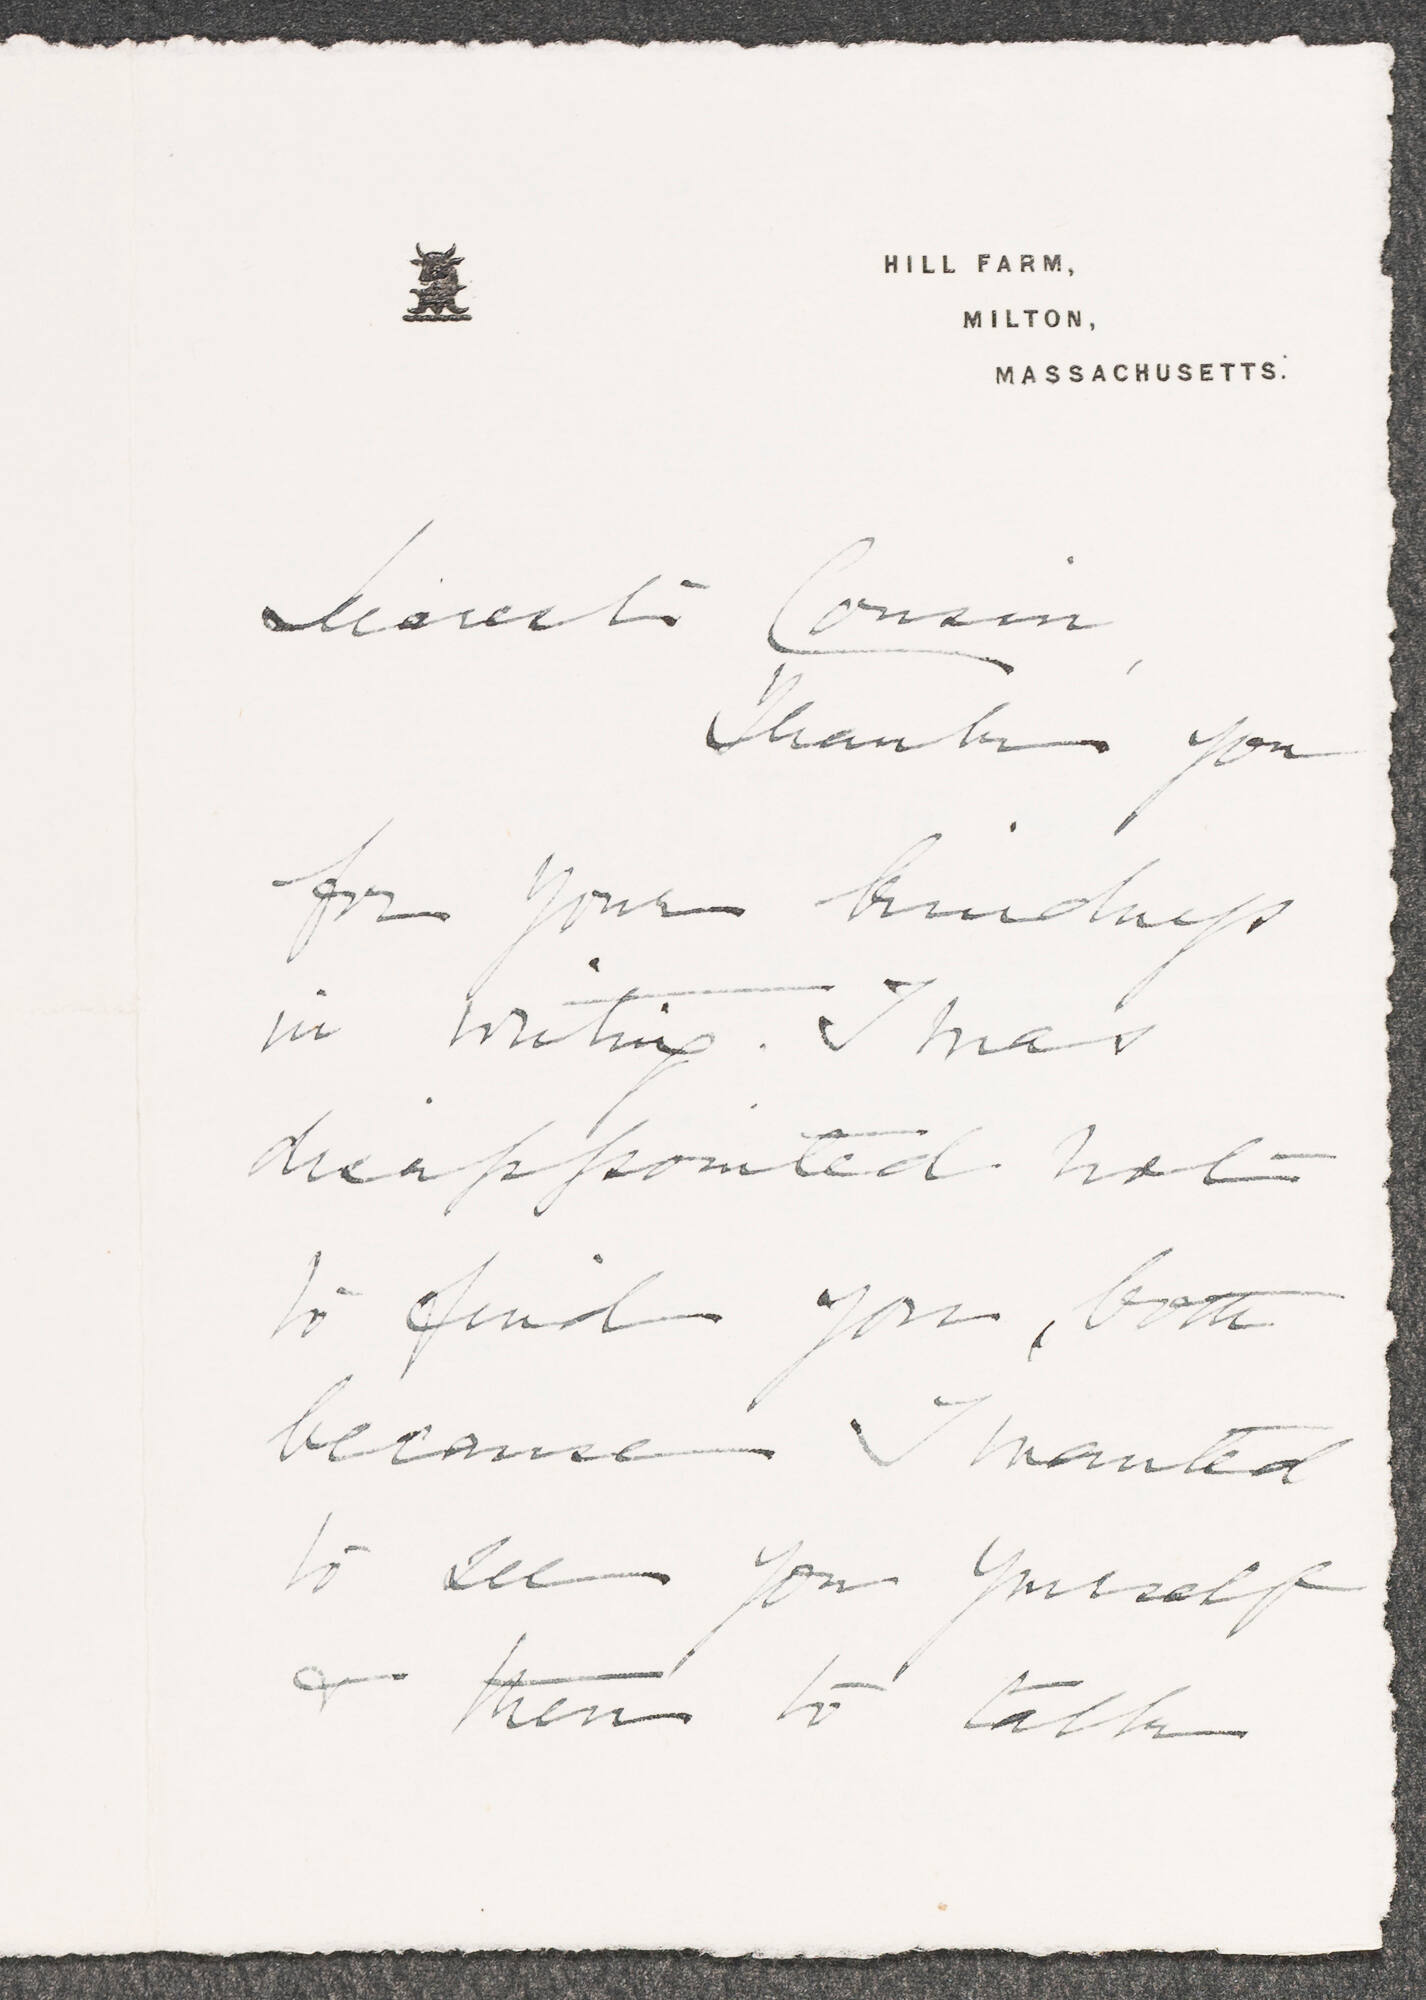 HILL FARM,
MILTON,
MASSACHUSETTS.
Dearest Cousin,
Thank you
for your kindness
in writing. I was
disappointed not
to find you, both
because I wanted
to see you yourself
& then to talk